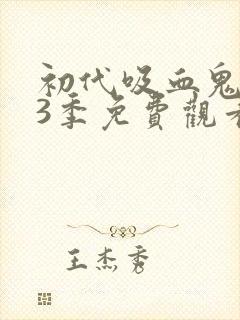 初代吸血鬼
3季免費觀看
王杰秀